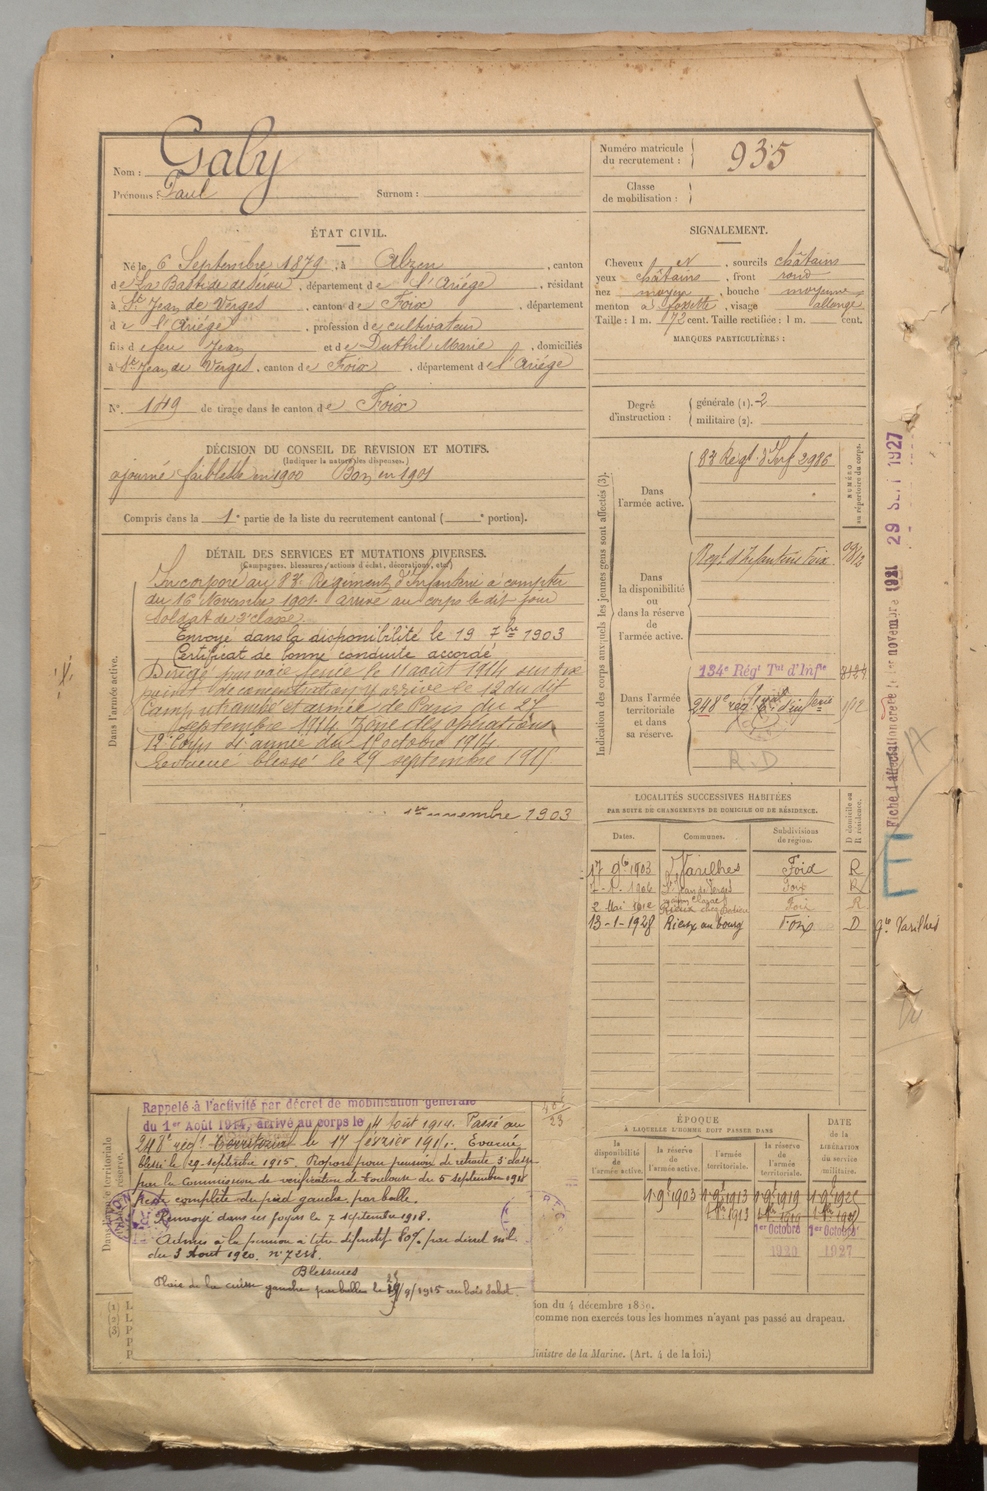 Nom : Galy
Prénoms : Paul Surnom :
Numéro matricule du recrutement : 935
Classe de mobilisation :
ÉTAT CIVIL.
Né le 6 Septembre 1879, à Alzen, canton
de La Bastide de Sérou, département de l'Ariège, résidant
à St Jean de Verges, canton de Foix, département
de l'Ariège, profession de cultivateur
fils de feu Jean et de Duthil Marie, domiciliés
à St Jean de Verges, canton de Foix, département de l'Ariège
N° 149 de tirage dans le canton de Foix
SIGNALEMENT.
Cheveux et sourcils châtains
yeux châtains, front rond
nez moyen, bouche moyenne
menton à fossette, visage allongé
Taille : 1 m. 72 cent. Taille rectifiée : 1 m. cent.
MARQUES PARTICULIÈRES :
Degré d'instruction : générale (1). 2
militaire (2).
DÉCISION DU CONSEIL DE REVISION ET MOTIFS.
(Indiquer la nature des dispenses.)
ajourné faiblesse en 1900 Bon en 1901
Compris dans la 1e partie de la liste du recrutement cantonal ( e portion).
DÉTAIL DES SERVICES ET MUTATIONS DIVERSES.
(Campagnes, blessures, actions d'éclat, décorations, etc.)
Dans l'armée active.
Incorporé au 83e Régiment d'Infanterie à compter
du 16 Novembre 1901. arrivé au corps le dit jour
Soldat de 2e classe
Envoyé dans la disponibilité le 19 7bre 1903
Certificat de bonne conduite accordé
Dirigé par voie ferrée le 11 août 1914 sur
point de concentration y arrive le 12 du dit
Camp retranché et armée de Paris du 27
septembre 1914 Zone des opérations
12e Corps 4e armée du 1er octobre 1914
Evacué blessé le 29 septembre 1915
1er novembre 1903
Indication des corps auxquels les jeunes gens sont affectés (3).
NUMÉRO au répertoire du corps.
Dans l'armée active.
83 Régt d'Inf 2986
Dans la disponibilité ou dans la réserve de l'armée active.
Régt d'Infanterie Foix
Dans l'armée territoriale et dans sa réserve.
134e Régt Tal d'Infie
248e régt d'infterie
R.D
LOCALITÉS SUCCESSIVES HABITÉES
PAR SUITE DE CHANGEMENTS DE DOMICILE OU DE RÉSIDENCE.
Dates. Communes. Subdivisions de région. D domicile ou R résidence.
17 9bre 1903 Varilhes Foix R
1906 St Jean de Verges Foix R
2 Mai 1912 Foix R
13-1-1928 Rieux au bourg Foix D
gie Varilhes
Fiche d'affectation créée le 1er novembre
29 1927
E
Dans l'armée territoriale réserve.
Rappelé à l'activité par décret de mobilisation générale
du 1er Août 1914, arrivé au corps le 4 août 1914. Passé au
248e régt le 17 février 1915. Evacué
blessé le 29 septembre 1915. Proposé pour pension de retraite 5e classe
par la Commission de vérification de Toulouse du 5 septembre 1918
complète du pied gauche par balle.
Renvoyé dans ses foyers le 7 septembre 1918.
Admis à la pension à titre définitif 80% par décret
du 3 Aout 1920.
Blessures
Plaie de la cuisse gauche par balle le /9/1915 au bois Sabot
ÉPOQUE
À LAQUELLE L'HOMME DOIT PASSER DANS
la disponibilité de l'armée active. la réserve de l'armée active. l'armée territoriale. la réserve de l'armée territoriale. DATE de la LIBÉRATION du service militaire.
1er Octobre 1er Octobre
1920 1927
(1)
(2)
(3)
ion du 4 décembre 1889.
comme non exercés tous les hommes n'ayant pas passé au drapeau.
Ministre de la Marine. (Art. 4 de la loi.)